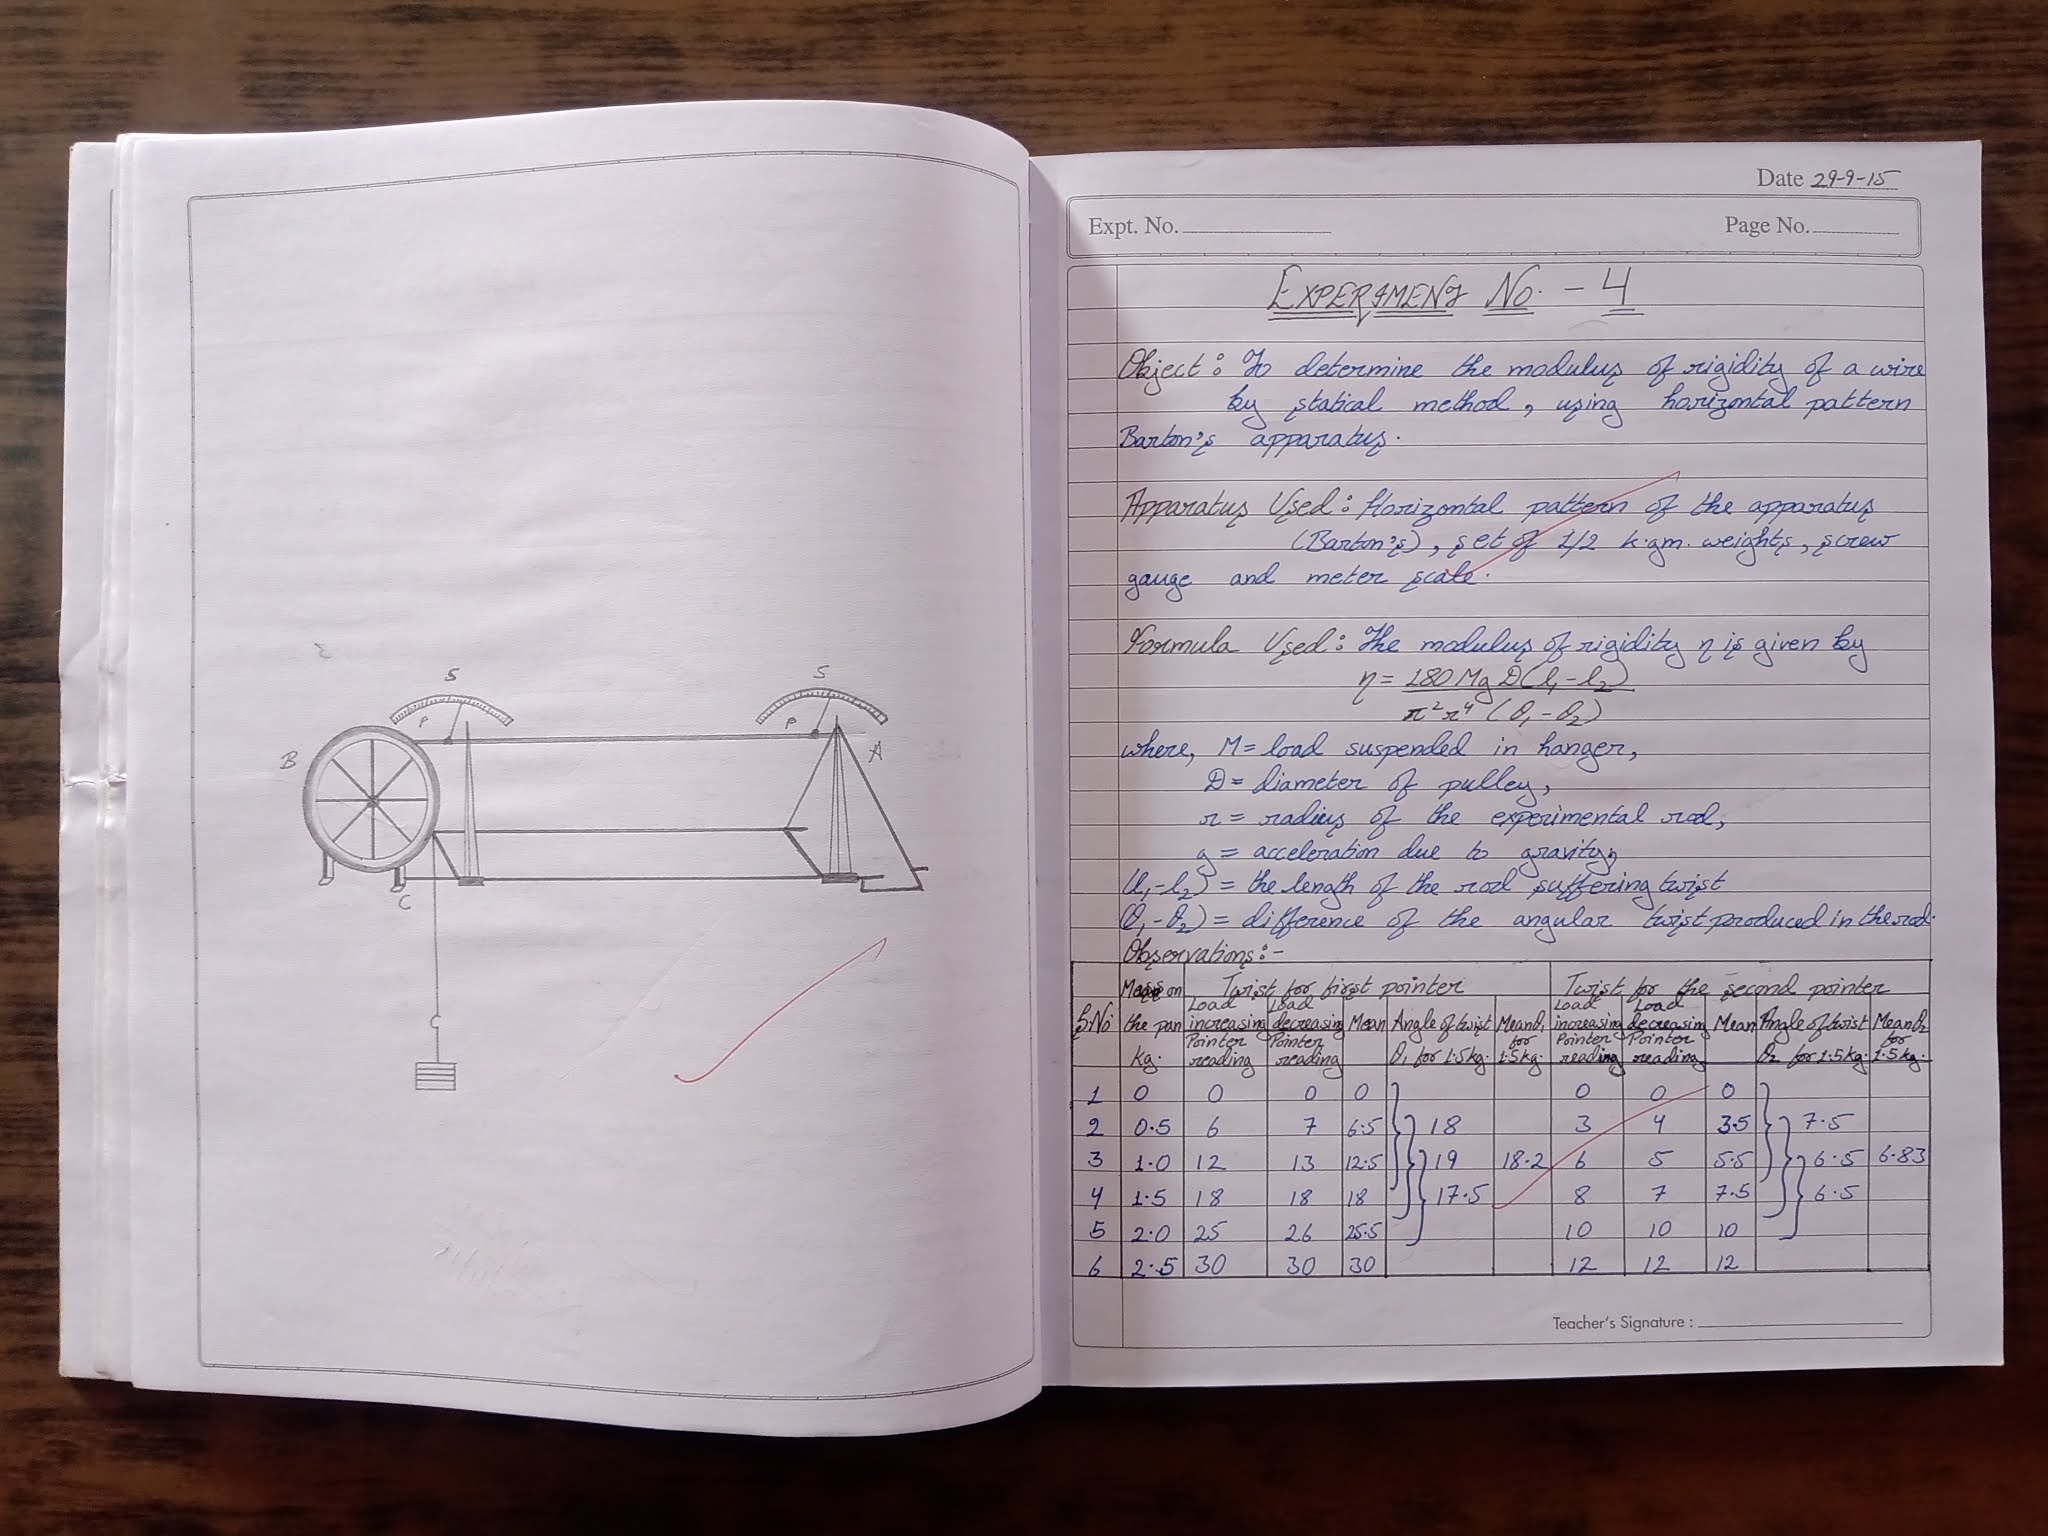 S
S
P
P
B
A
C
Date 29-9-15
Expt. No.
Page No.
EXPERIMENT NO. - 4
Object : To determine the modulus of rigidity of a wire
by statical method, using horizontal pattern
Barton's apparatus.
Apparatus Used : Horizontal pattern of the apparatus
(Barton's), set of 1/2 k.gm. weights, screw
gauge and meter scale.
Formula Used : The modulus of rigidity η is given by
η = 180 Mg D(l₁-l₂)
π²r⁴ (θ₁-θ₂)
where, M = load suspended in hanger,
D = diameter of pulley,
r = radius of the experimental rod,
g = acceleration due to gravity,
(l₁-l₂) = the length of the rod suffering twist
(θ₁-θ₂) = difference of the angular twist produced in the rod.
Observations :-
S.No Mass on the pan Kg. Twist for first pointer Twist for the second pointer
Load increasing Pointer reading Load decreasing Pointer reading Mean Angle of twist θ₁ for 1.5kg. Mean θ₁ for 1.5kg. Load increasing Pointer reading Load decreasing Pointer reading Mean Angle of twist θ₂ for 1.5kg. Mean θ₂ for 1.5kg.
1 0 0 0 0 0 0 0
2 0.5 6 7 6.5 18 3 4 3.5 7.5
3 1.0 12 13 12.5 19 18.2 6 5 5.5 6.5 6.83
4 1.5 18 18 18 17.5 8 7 7.5 6.5
5 2.0 25 26 25.5 10 10 10
6 2.5 30 30 30 12 12 12
Teacher's Signature :